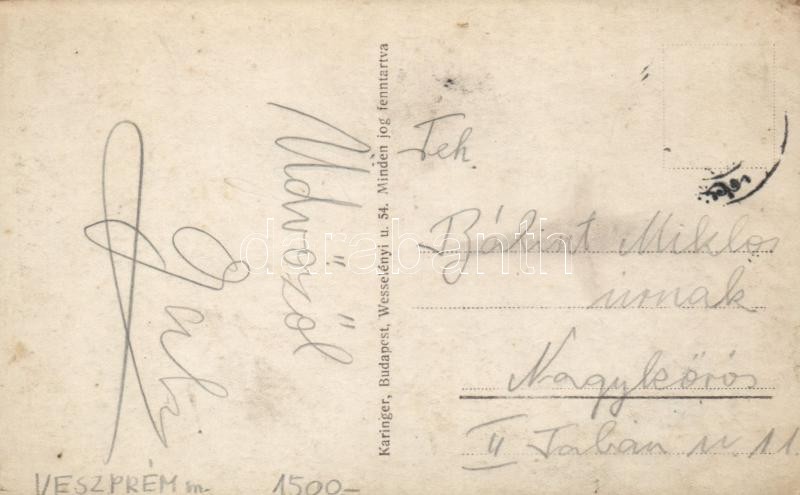 Üdvözöl
Karinger, Budapest, Wesselényi u. 54. Minden jog fenntartva
Tek
Bálint Miklos
urnak
Nagykőrös
II Tabán u. 11
VESZPRÉM m. 1500-
darabanth